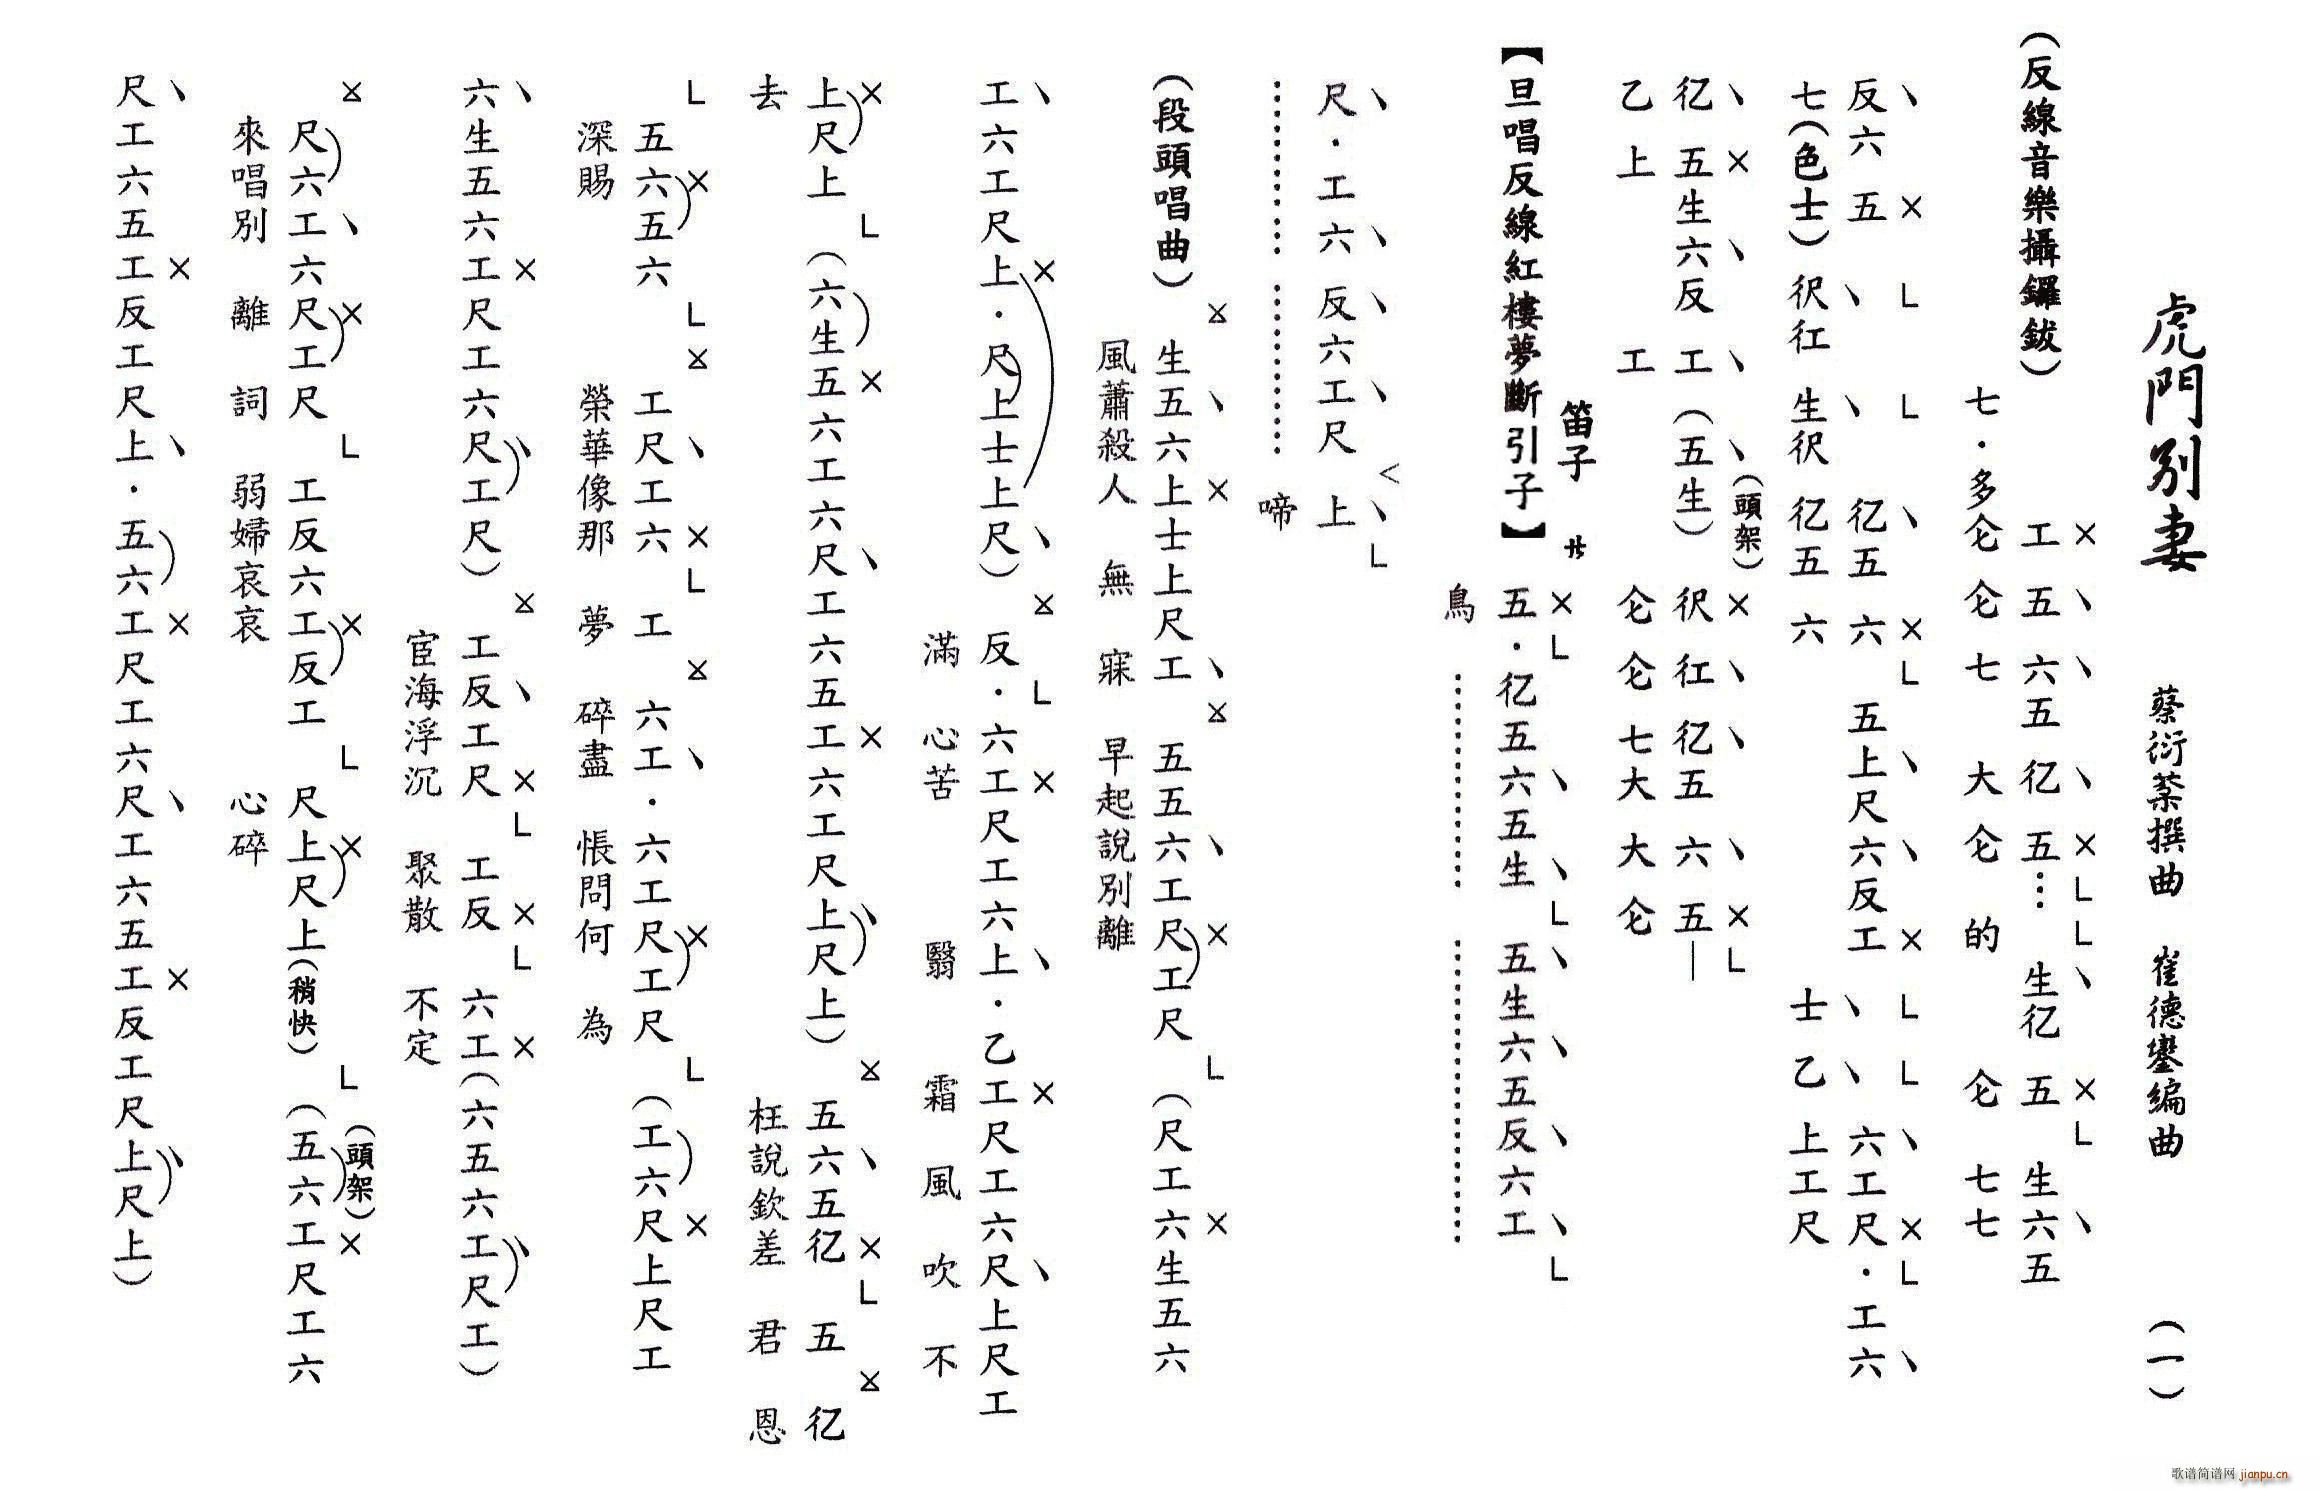 虎門別妻 蔡衍棻撰曲 崔德鑾編曲 (一)
(反線音樂攝鑼鈸) 工 五 六五 亿 五… 生亿 五 生六五
七・多仑 仑 七 大 仑 的 仑 七七
反六 五 亿五 六 五上尺六反工 六工尺・工六
七(色士)伬仜 生伬 亿五 六 士 乙 上工尺
(頭架)
亿 五生六反 工 (五生) 伬 仜 亿五 六 五—
乙 上 工 仑 仑 七大 大 仑
笛子 サ
【旦唱反線紅樓夢斷引子】 五・亿五六五生 五生六五反六工
鳥
尺・工六 反六工尺 上
啼
(段頭唱曲) 生五六上士上尺工 五五六工尺工尺 (尺工六生五六
風蕭殺人 無 寐 早起說別離
工六工尺上・尺上士上尺) 反・六工尺工六上・乙工尺工六尺上尺工
滿 心苦 翳 霜 風 吹 不
上尺上 (六生五六工六尺工六五工六工尺上尺上) 五六五亿 五 亿
去 枉說欽差 君 恩
五六五六 工尺工六 工 六工・六工尺工尺 (工六尺上尺工
深賜 榮華像那 夢 碎盡 悵問何 為
六生五六工尺工六尺工尺) 工反工尺 工反 六工(六五六工尺工)
宦海浮沉 聚散 不定
(頭架)
尺六工六尺工尺 工反六工反工 尺上尺上(稍快) (五六工尺工六
來唱別 離 詞 弱婦哀哀 心碎
尺工六五工反工尺上・五六工尺工六尺工六五工反工尺上尺上)
歌谱简谱网 jianpu.cn